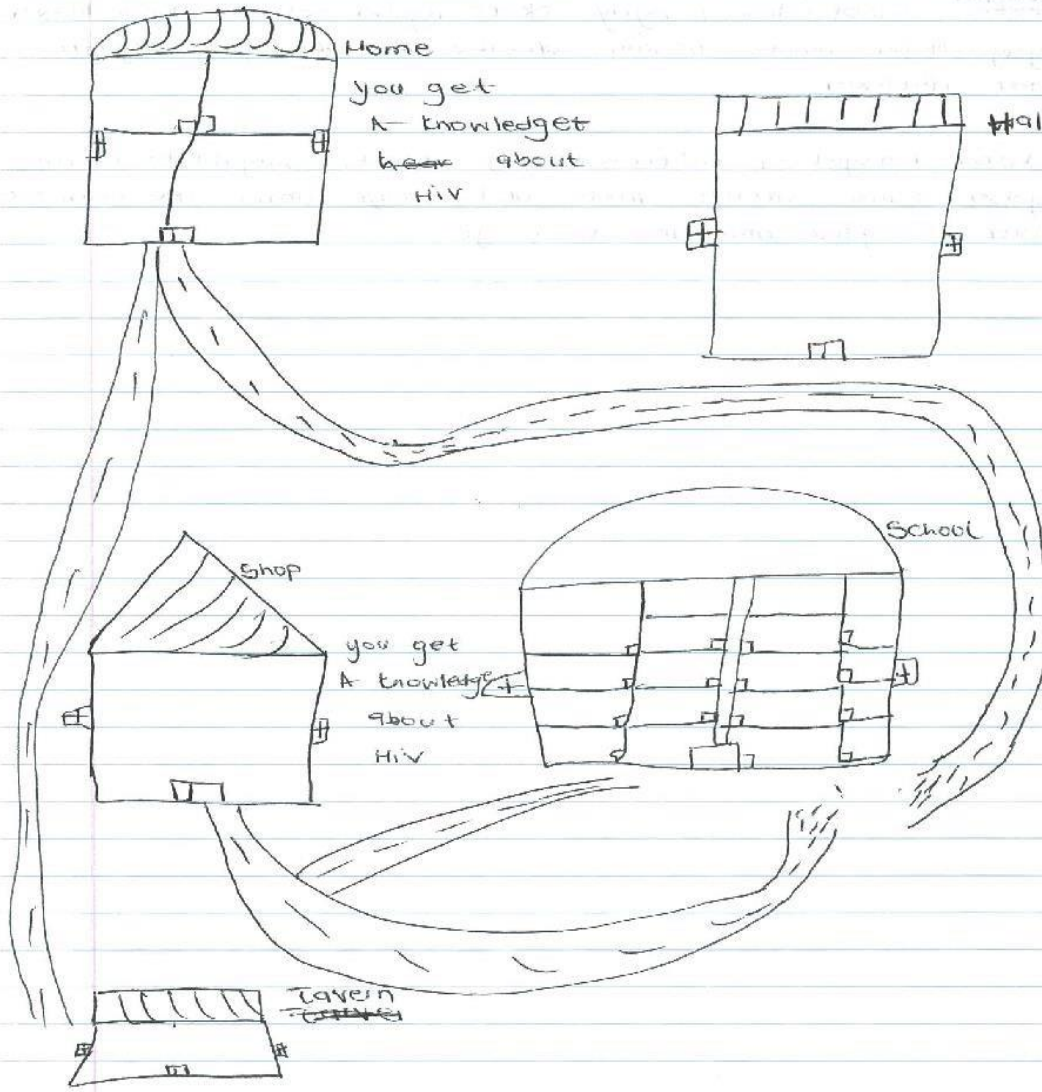 Home
you get
A knowledget
about
HIV
Hal
School
Shop
you get
A knowledge
about
HIV
Tavern